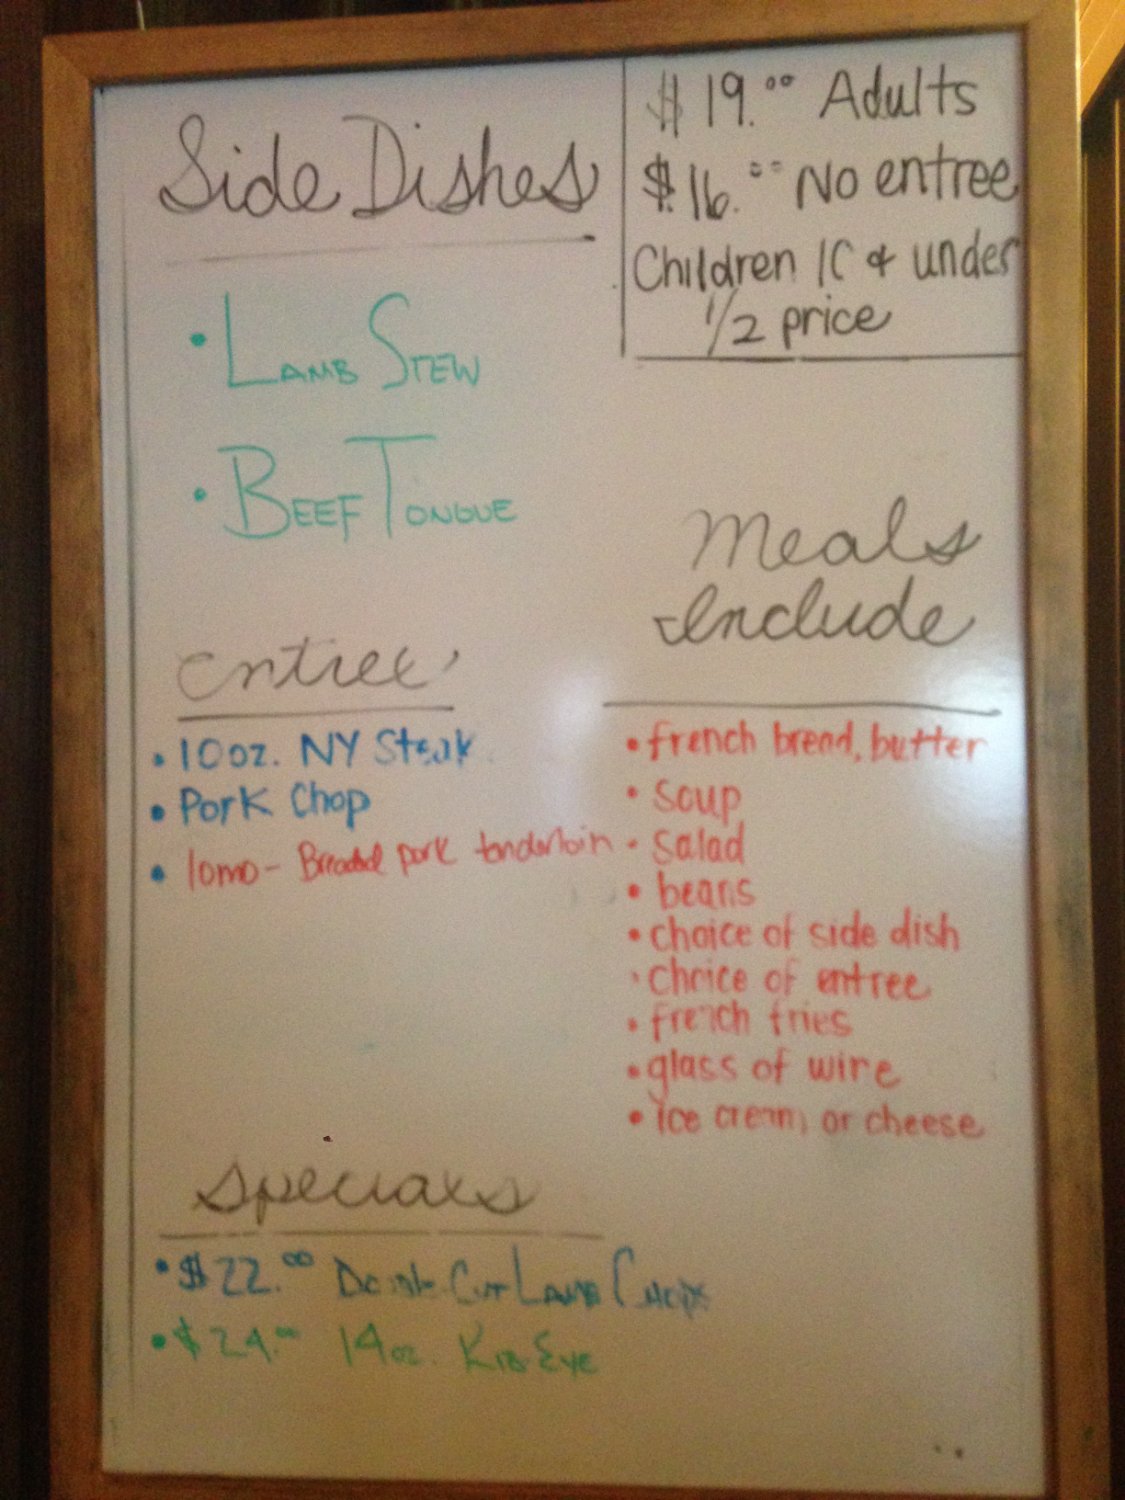 Side Dishes
• Lamb Stew
• Beef Tongue
$19.00 Adults
$16.00 No entree
Children 10 & under
1/2 price
Entree
• 10oz. NY Steak
• Pork Chop
• lomo - Breaded pork tenderloin
Meals
Include
• french bread, butter
• soup
• salad
• beans
• choice of side dish
• choice of entree
• french fries
• glass of wine
• ice cream or cheese
Specials
• $22.00 Double Cut Lamb Chops
• $24.00 14oz. Rib Eye